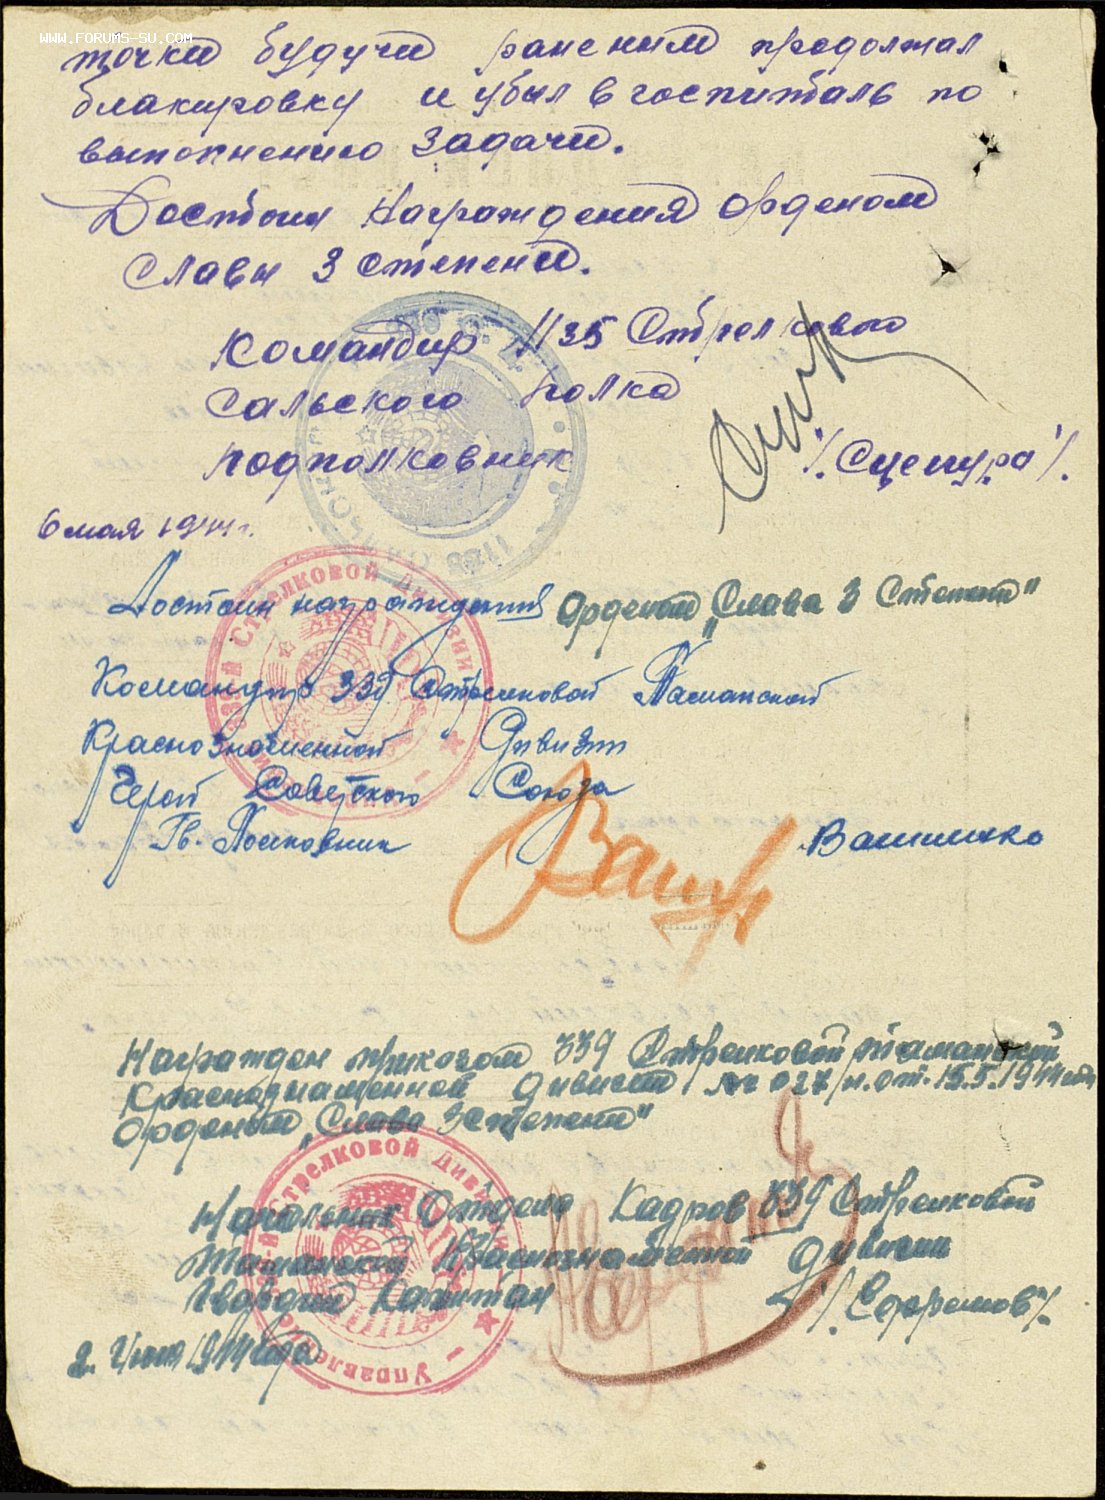 WWW.FORUMS-SU.COM
точки будучи раненым продолжал
блакировку и убыл в госпиталь по
выполнению задачи.
Достоин награждения орденом
Славы 3 степени.
Командир 1135 Стрелкового
Сальского полка
подполковник /Сцепура/.
6 мая 1944 г.
Достоин награждения Орденом „Слава 3 Степени"
Командир 339 Стрелковой Таманской
Краснознаменной Дивизии
Герой Советского Союза
Гв. Полковник Василенко
Награжден приказом 339 Стрелковой таманской
Краснознаменной дивизии № 027/н. от. 15.5.1944 года
Орденом „Слава 3 степени"
Начальник Отдела Кадров 339 Стрелковой
Таманской Краснознаменной дивизии
Гвардии Капитан /Ефремов/.
2. Июня 1944 года
Стрелковой Дивизии
Стрелковой Дивизии
Управление